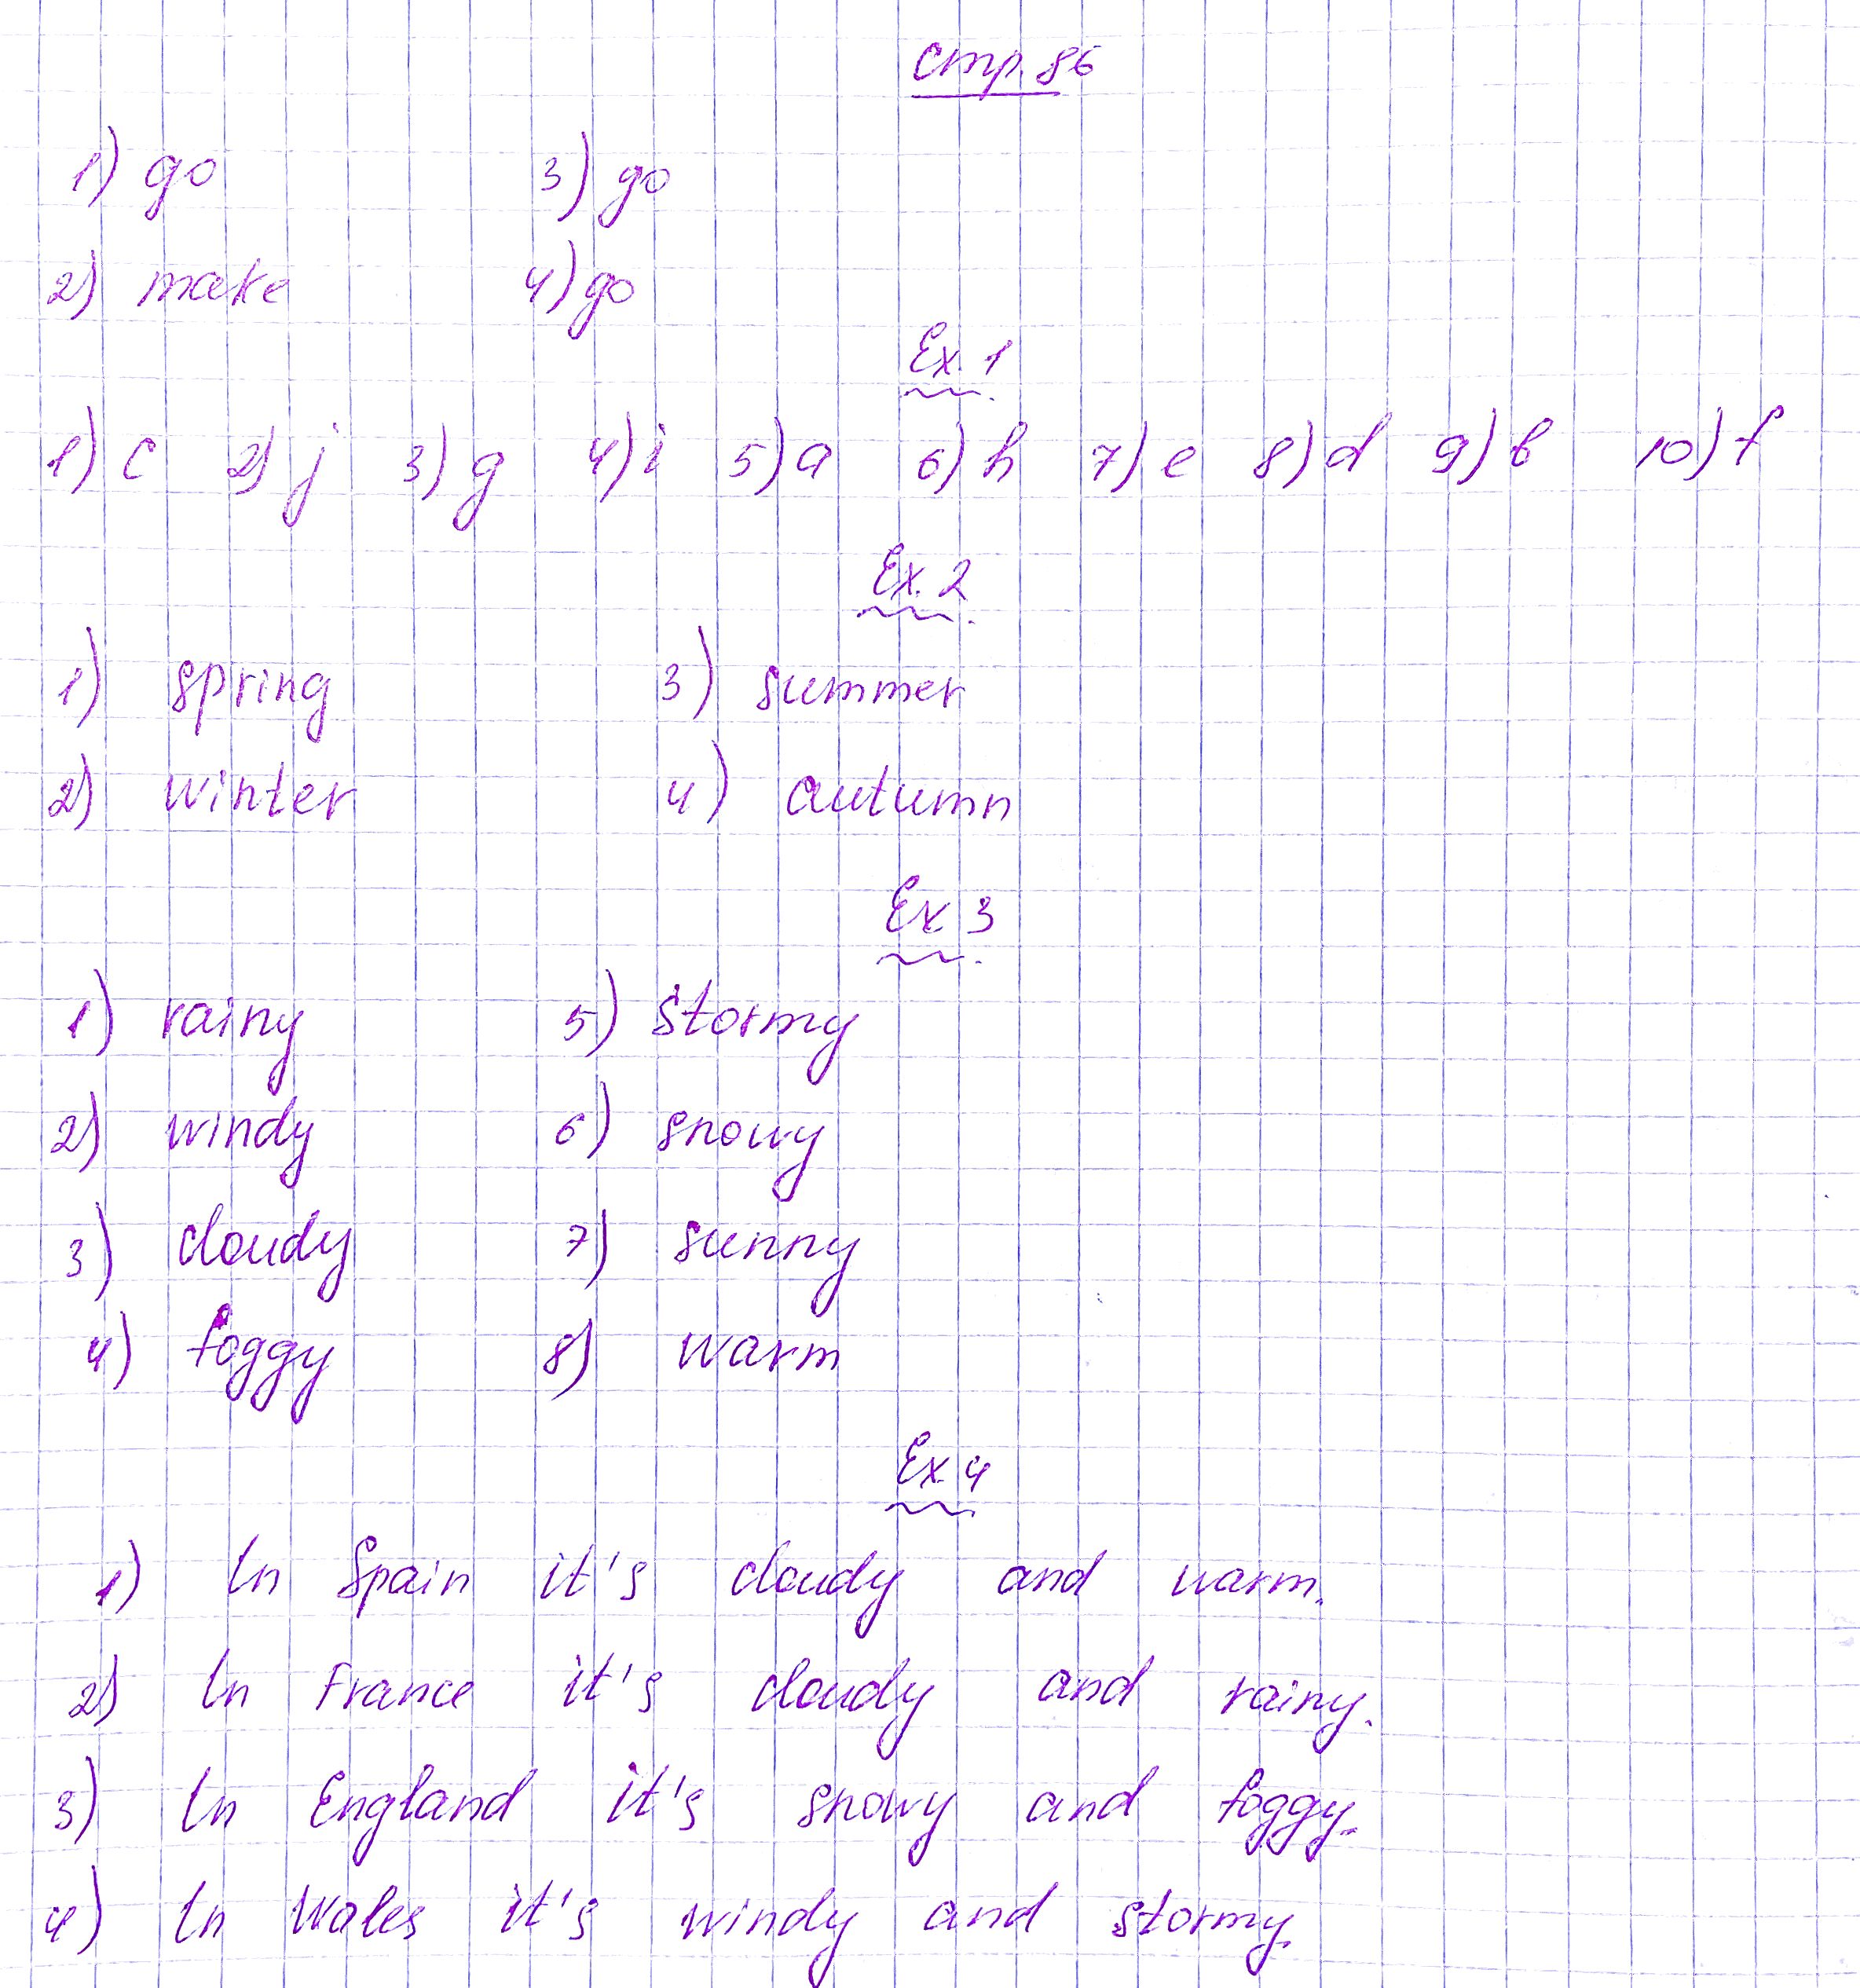 стр. 86
1) go 3) go
2) make 4) go
Ex. 1
1) c 2) j 3) g 4) i 5) a 6) h 7) e 8) d 9) b 10) f
Ex. 2
1) spring 3) summer
2) winter 4) autumn
Ex 3
1) rainy 5) stormy
2) windy 6) snowy
3) cloudy 7) sunny
4) foggy 8) warm
Ex 4
1) In Spain it's cloudy and warm.
2) In France it's cloudy and rainy.
3) In England it's snowy and foggy.
4) In Wales it's windy and stormy.